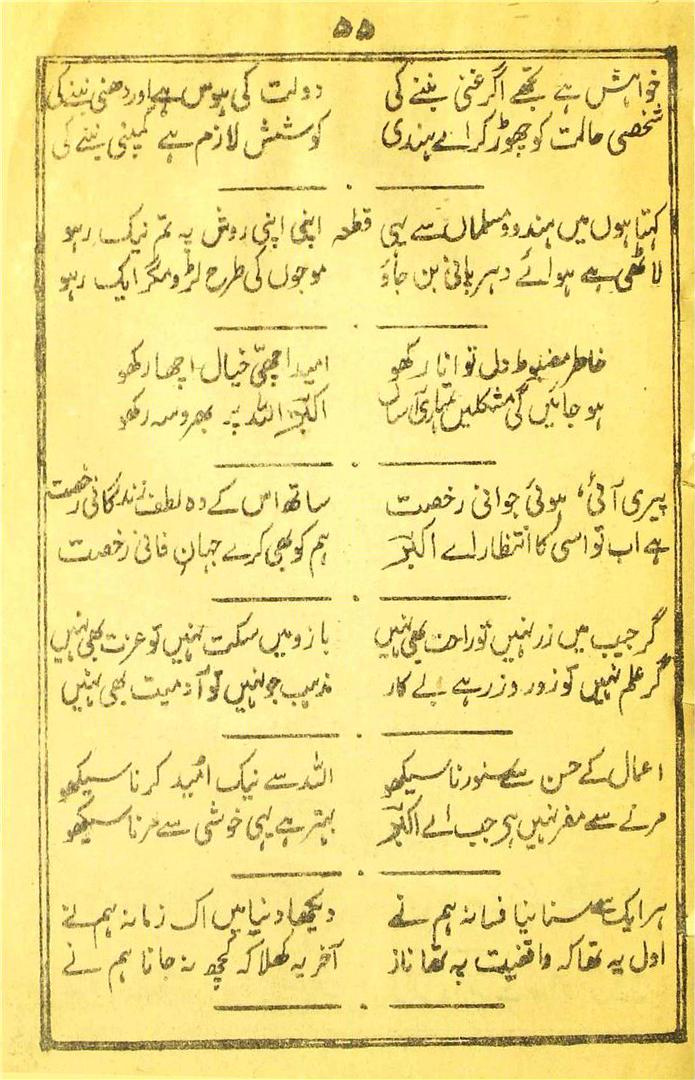 ۵۵
خواہش ہے تجھے اگر غنی بننے کی دولت کی ہوس ہے اور دھنی بننے کی
شخصی حالت کو چھوڑ کر اے ہندی کوشش لازم ہے کمپنی بننے کی
کہتا ہوں میں ہندو و مسلماں سے یہی قطعہ اپنی اپنی روش پہ تم نیک رہو
لاٹھی ہے ہوائے دہر پانی بن جاؤ موجوں کی طرح لڑو مگر ایک رہو
خاطر مضبوط دل توانا رکھو امید اچھی خیال اچھا رکھو
ہو جائیں گی مشکلیں تمہاری آساں اکبرؔ اللہ پہ بھروسہ رکھو
پیری آئی، ہوئی جوانی رخصت ساتھ اس کے وہ لطف زندگانی رخصت
ہے اب تو اسی کا انتظار اے اکبرؔ ہم کو بھی کرے جہانِ فانی رخصت
گر جیب میں زر نہیں تو راحت بھی نہیں بازو میں سکت نہیں تو عزت بھی نہیں
گر علم نہیں تو زور و زر ہے بے کار مذہب جو نہیں تو آدمیت بھی نہیں
اعمال کے حسن سے سنورنا سیکھو اللہ سے نیک امید کرنا سیکھو
مرنے سے مفر نہیں ہے جب اے اکبرؔ بہتر ہے یہی خوشی سے مرنا سیکھو
ہر ایک سے سنا نیا فسانہ ہم نے دیکھا دنیا میں اک زمانہ ہم نے
اول یہ تھا کہ واقفیت پہ تھا ناز آخر یہ کھلا کہ کچھ نہ جانا ہم نے